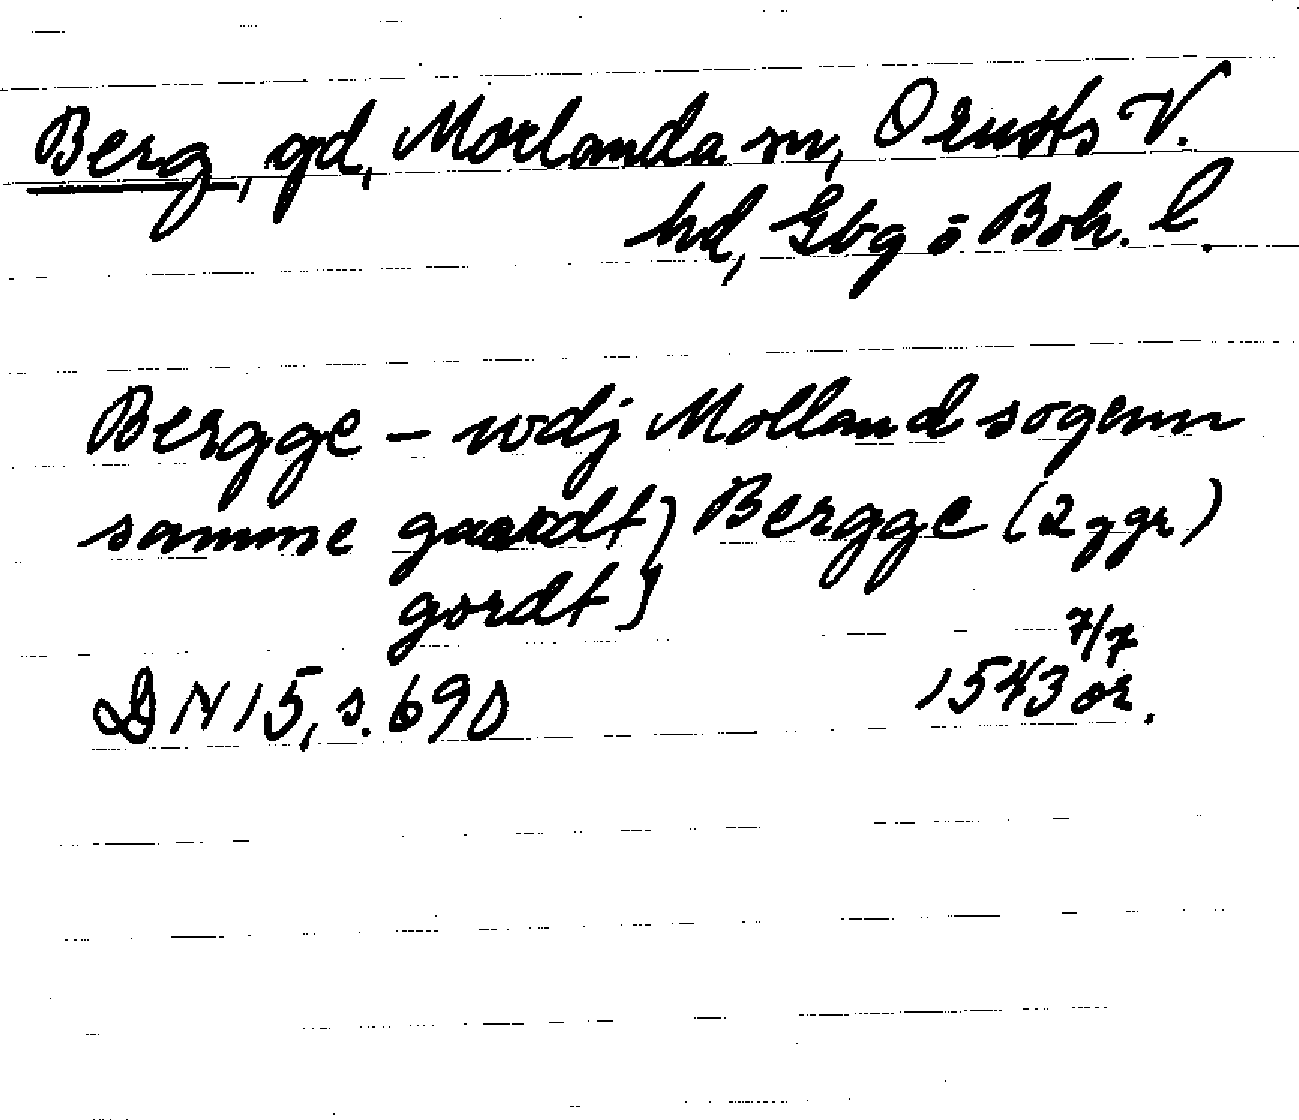 Berg, gd, Morlanda sn, Orusts V.
hd, Gbg o Boh. l.
Bergge – wdj Molland sogenn
samme gaardt) Bergge (2 ggr)
gordt)
7/7
DN 15, s. 690 1543 or.